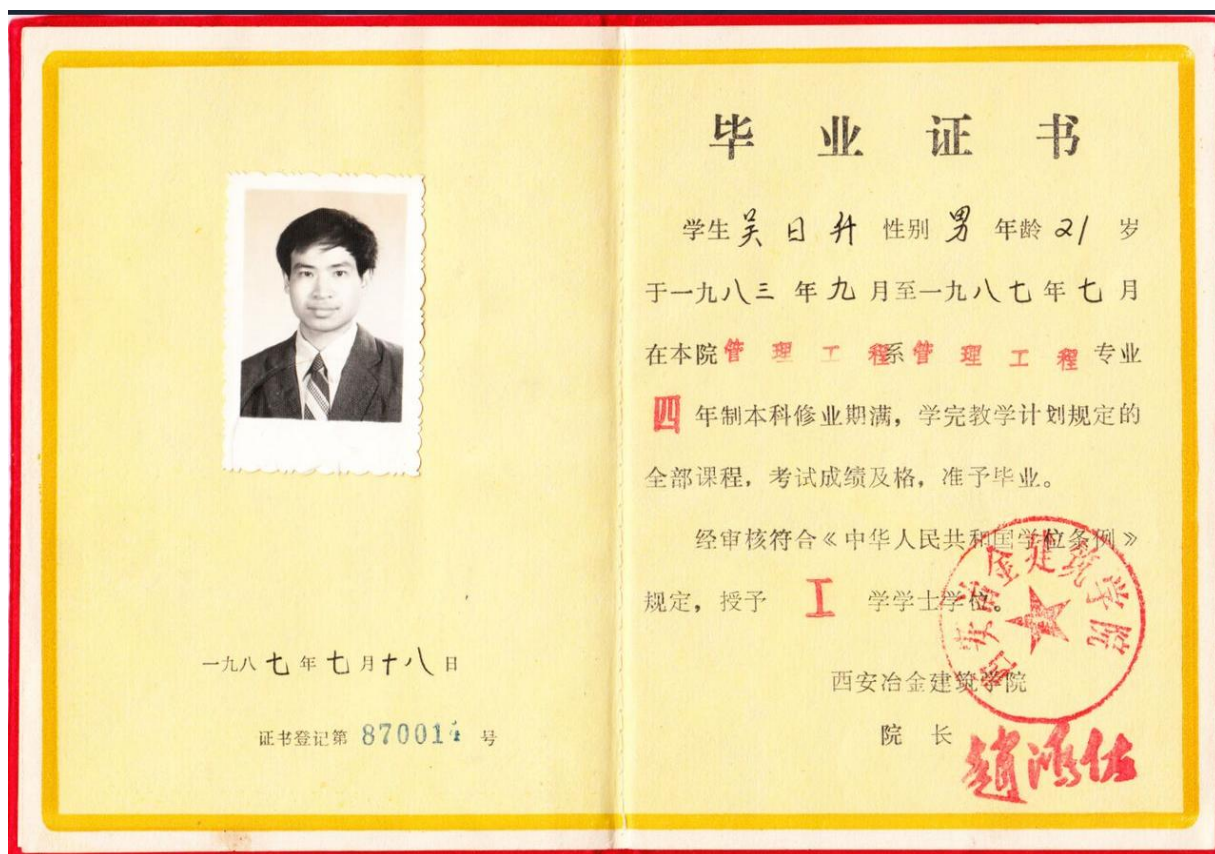 一九八七年七月十八日
证书登记第 870014 号
毕业证书
学生吴日升 性别 男 年龄 21 岁
于一九八三 年九月至一九八七年七月
在本院管理工程系管理工程专业
四年制本科修业期满，学完教学计划规定的
全部课程，考试成绩及格，准予毕业。
经审核符合《中华人民共和国学位条例》
规定，授予 工 学学士学位。
西安冶金建筑学院
西安冶金建筑学院
院长
趙鸿佐